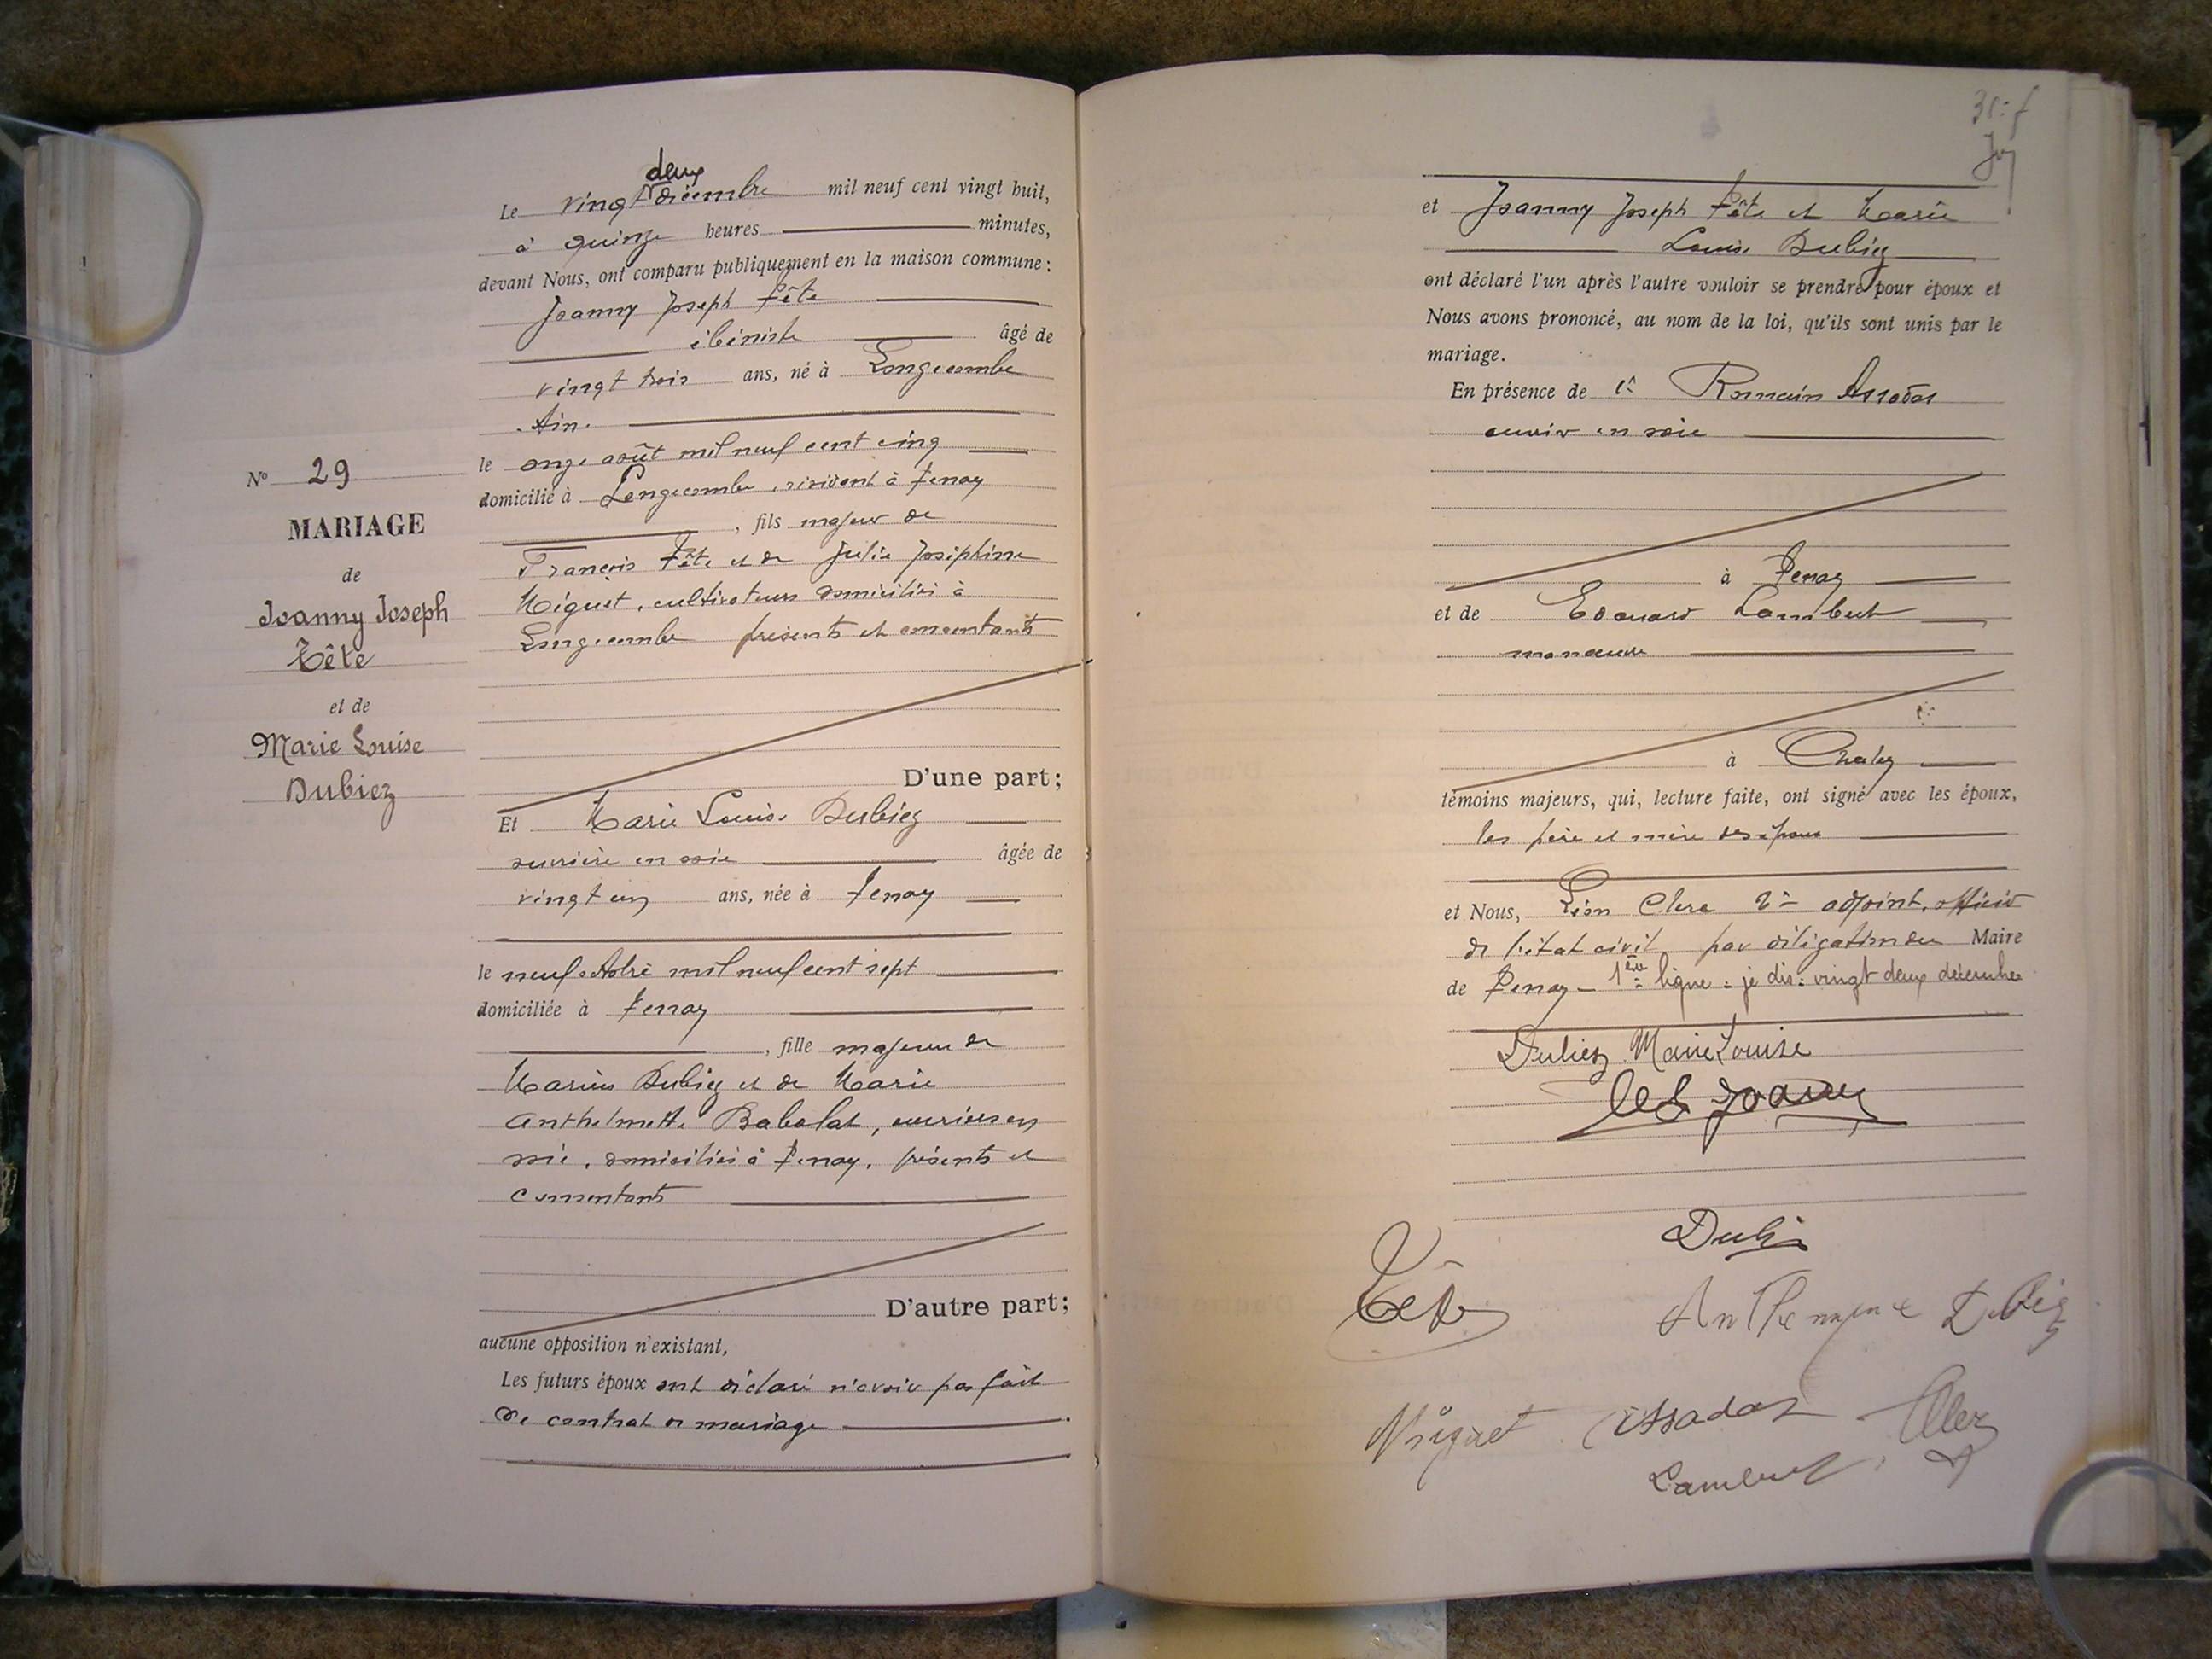 deux
Le vingt décembre mil neuf cent vingt huit,
à quinze heures minutes,
devant Nous, ont comparu publiquement en la maison commune :
Joanny Joseph Tête
ébéniste âgé de
vingt trois ans, né à Longecombe
Ain.
le onze août mil neuf cent cinq
domicilié à Longecombe, résident à Tenay
, fils majeur de
François Tête et de Julie Joséphine
Niguet, cultivateurs domiciliés à
Longecombe présents et consentants
D'une part ;
Nº 29
MARIAGE
de
Joanny Joseph
Tête
et de
Marie Louise
Dubiez
Et Marie Louise Dubiez
ouvrière en soie âgée de
vingt un ans, née à Tenay
le neuf octobre mil neuf cent sept
domiciliée à Tenay
, fille majeure de
Marius Dubiez et de Marie
Anthelmette Babolat, ouvriers en
soie, domiciliés à Tenay, présents et
consentants
D'autre part ;
aucune opposition n'existant,
Les futurs époux ont déclaré n'avoir pas fait
de contrat de mariage
et Joanny Joseph Tête et Marie
Louise Dubiez
ont déclaré l'un après l'autre vouloir se prendre pour époux et
Nous avons prononcé, au nom de la loi, qu'ils sont unis par le
mariage.
En présence de Romain Assadas
ouvrier en soie
à Tenay
et de Edouard Lambert
manœuvre
à Chaley
témoins majeurs, qui, lecture faite, ont signé avec les époux,
les père et mère des époux
et Nous, Léon Clerc 2e adjoint, officier
de l'état civil par délégation du Maire
de Tenay - 1ère ligne : je dis : vingt deux décembre
Dubiez Marie Louise
Tête Joanny
Dubiez
Tête
Dubiez
Niguet Assadas
Lambert